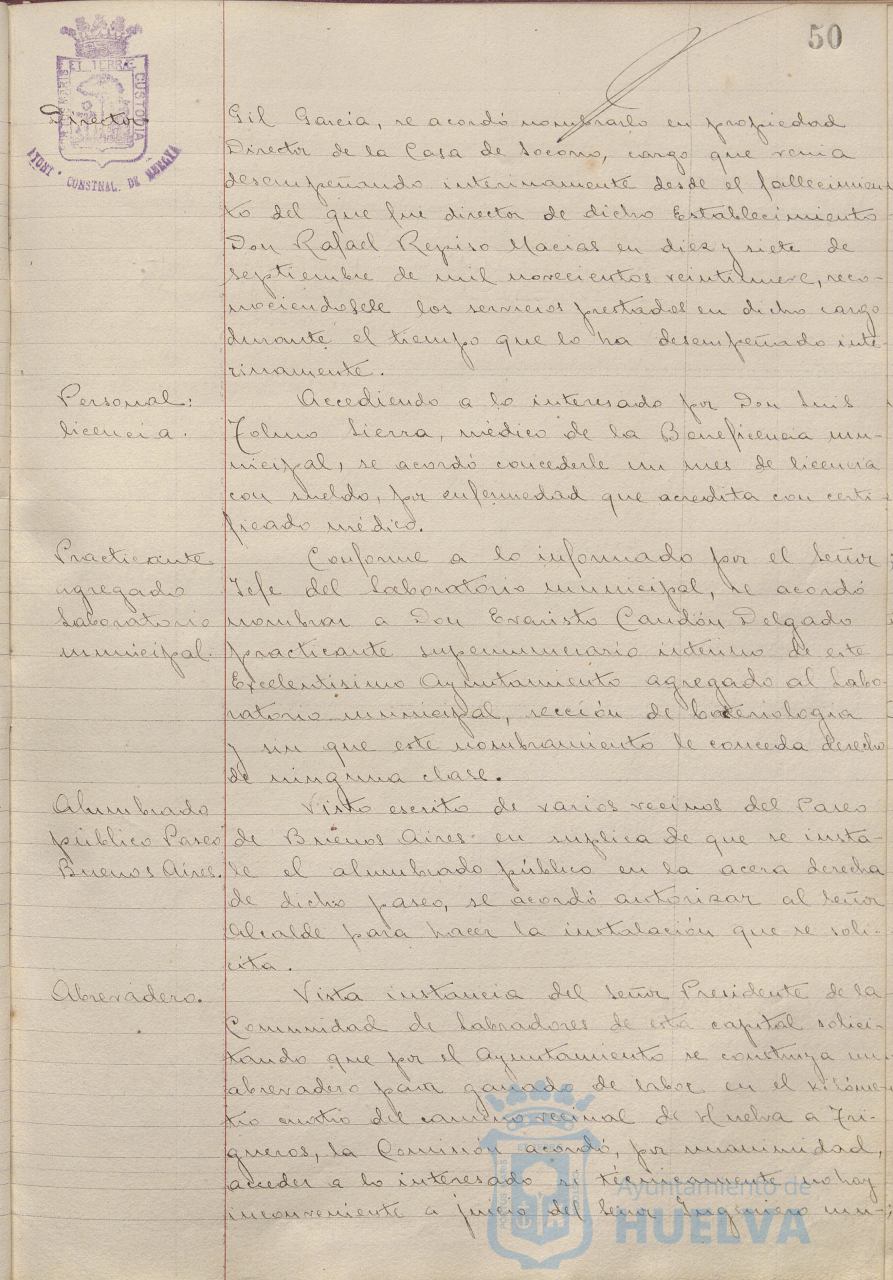 50
PORTUS MARIS ET TERRE CUSTODIA
AYUNT. CONSTNAL. DE HUELVA
Director
Gil García, se acordó nombrarlo en propiedad
Director de la Casa de Socorro, cargo que venia
desempeñando interinamente desde el fallecimien
to del que fue director de dicho Establecimiento
Don Rafael Repiso Macias en diez y siete de
septiembre de mil novecientos veintinueve, reco-
nociendosele los servicios prestados en dicho cargo
durante el tiempo que lo ha desempeñado inte-
rinamente.
Personal:
licencia.
Accediendo a lo interesado por Don Luis
Tolmo Sierra, médico de la Beneficencia mu-
nicipal, se acordó concederle un mes de licencia
con sueldo, por enfermedad que acredita con certi-
ficado médico.
Practicante
agregado
Laboratorio
municipal.
Conforme a lo informado por el Señor
Jefe del Laboratorio municipal, se acordó
nombrar a Don Evaristo Candón Delgado
practicante supernumerario interino de este
Excelentisimo Ayuntamiento agregado al Labo-
ratorio municipal, sección de bacteriologia
y sin que este nombramiento le conceda derecho
de ninguna clase.
Alumbrado
público Paseo
Buenos Aires.
Visto escrito de varios vecinos del Paseo
de Buenos Aires en suplica de que se insta-
le el alumbrado público en la acera derecha
de dicho paseo, se acordó autorizar al Señor
Alcalde para hacer la instalación que se soli-
cita.
Abrevadero.
Vista instancia del Señor Presidente de la
Comunidad de Labradores de esta capital solici-
tando que por el Ayuntamiento se construya un
abrevadero para ganado de labor en el kilóme-
tro cuatro del camino vecinal de Huelva a Tri-
gueros, la Comisión acordó, por unanimidad,
acceder a lo interesado si técnicamente no hay
inconveniente a juicio del Señor Ingeniero mu-
Ayuntamiento de
HUELVA